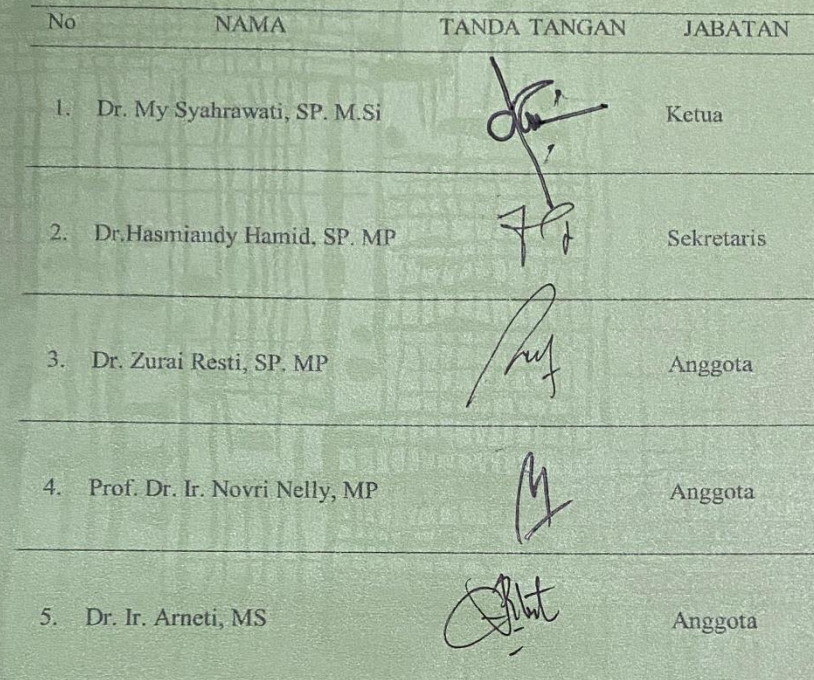 No NAMA TANDA TANGAN JABATAN
1. Dr. My Syahrawati, SP. M.Si Ketua
2. Dr.Hasmiandy Hamid, SP. MP Sekretaris
3. Dr. Zurai Resti, SP. MP Anggota
4. Prof. Dr. Ir. Novri Nelly, MP Anggota
5. Dr. Ir. Arneti, MS Anggota